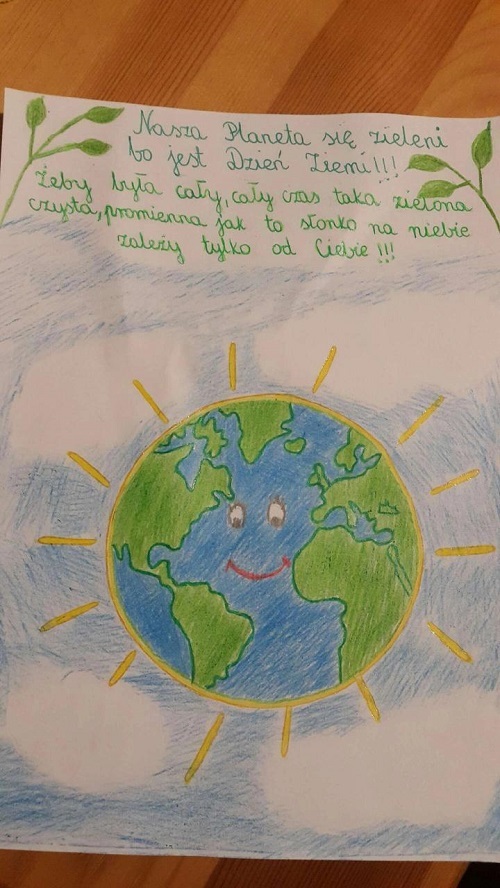 Nasza Planeta się zieleni
bo jest Dzień Ziemi!!!
Żeby była cały, cały czas taka zielona
czysta, promienna jak to słonko na niebie
zależy tylko od Ciebie !!!